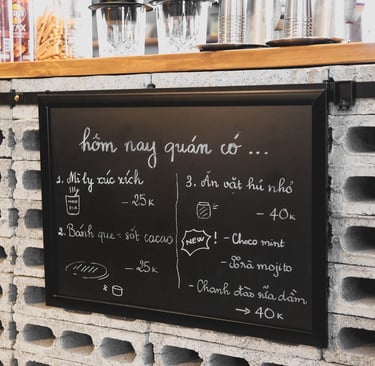 hôm nay quán có ...
1. Mì ly xúc xích
- 25K
2. Bánh que + sốt cacao
- 25K
3. Ăn vặt hú nhỏ
- 40K
NEW ! - Choco mint
- mojito
- Chanh đào sữa dầm
→ 40K